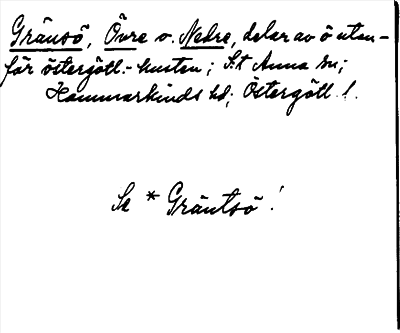 Gränsö, Övre o. Nedre, delar av ö utan-
för östergötl.-kusten; S:t Anna sn;
Hammarkinds hd; Östergötl. l.
Se * Gräntsö!